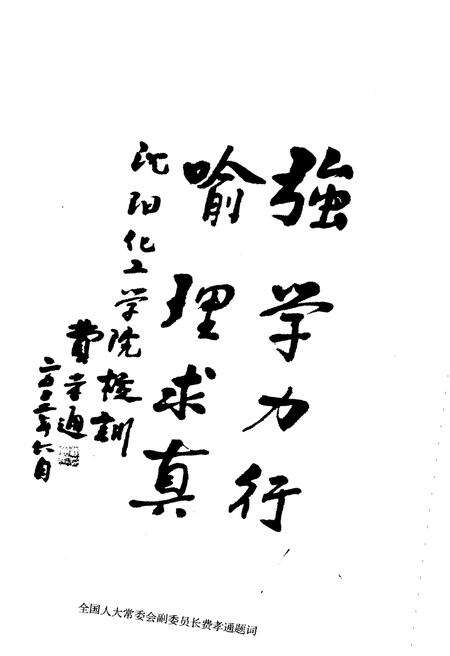 強学力行
喻理求真
沈阳化工学院校训
费孝通
二〇〇二年六月
全国人大常委会副委员长费孝通题词